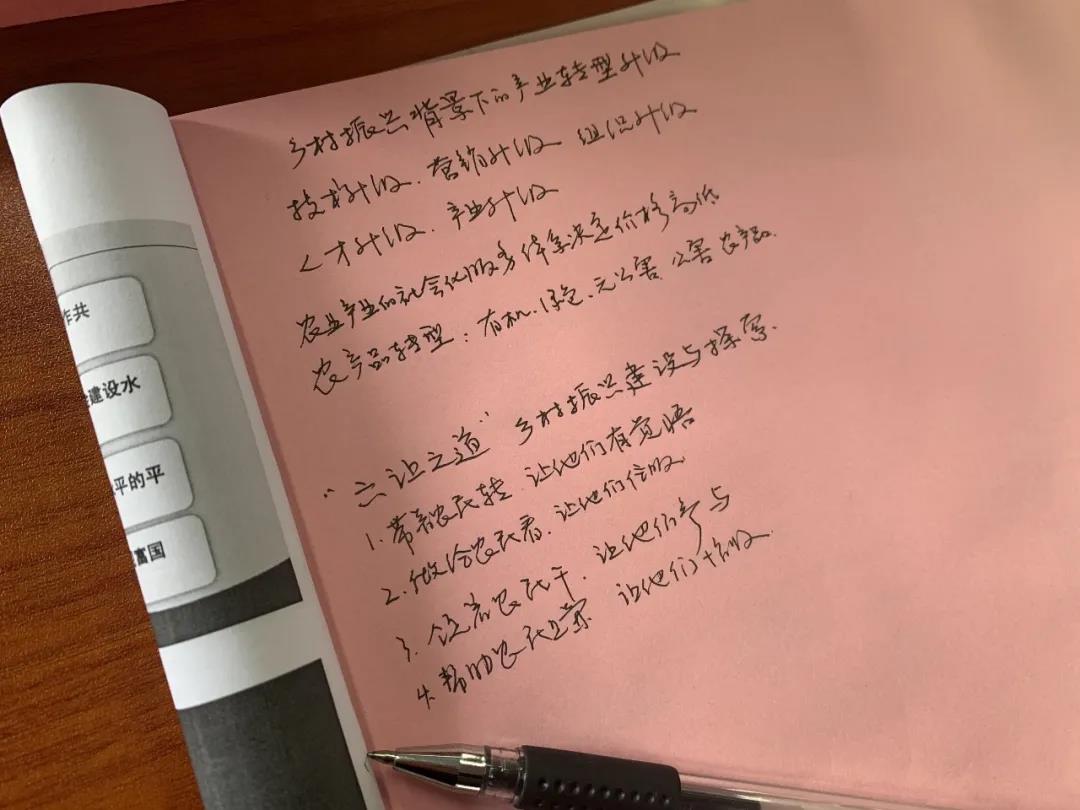 乡村振兴背景下的产业转型升级
技术升级、营销升级 组织升级
人才升级、产业升级
农业产业的社会化服务体系决定价格高低
农产品转型：有机、绿色、无公害、公害农产品.
“六让之道” 乡村振兴建设与探索.
1. 带着农民转、让他们有觉悟
2. 做给农民看、让他们信服.
3. 领着农民干、让他们参与
4. 帮助农民 让他们
作共
建设水
平的平
富国